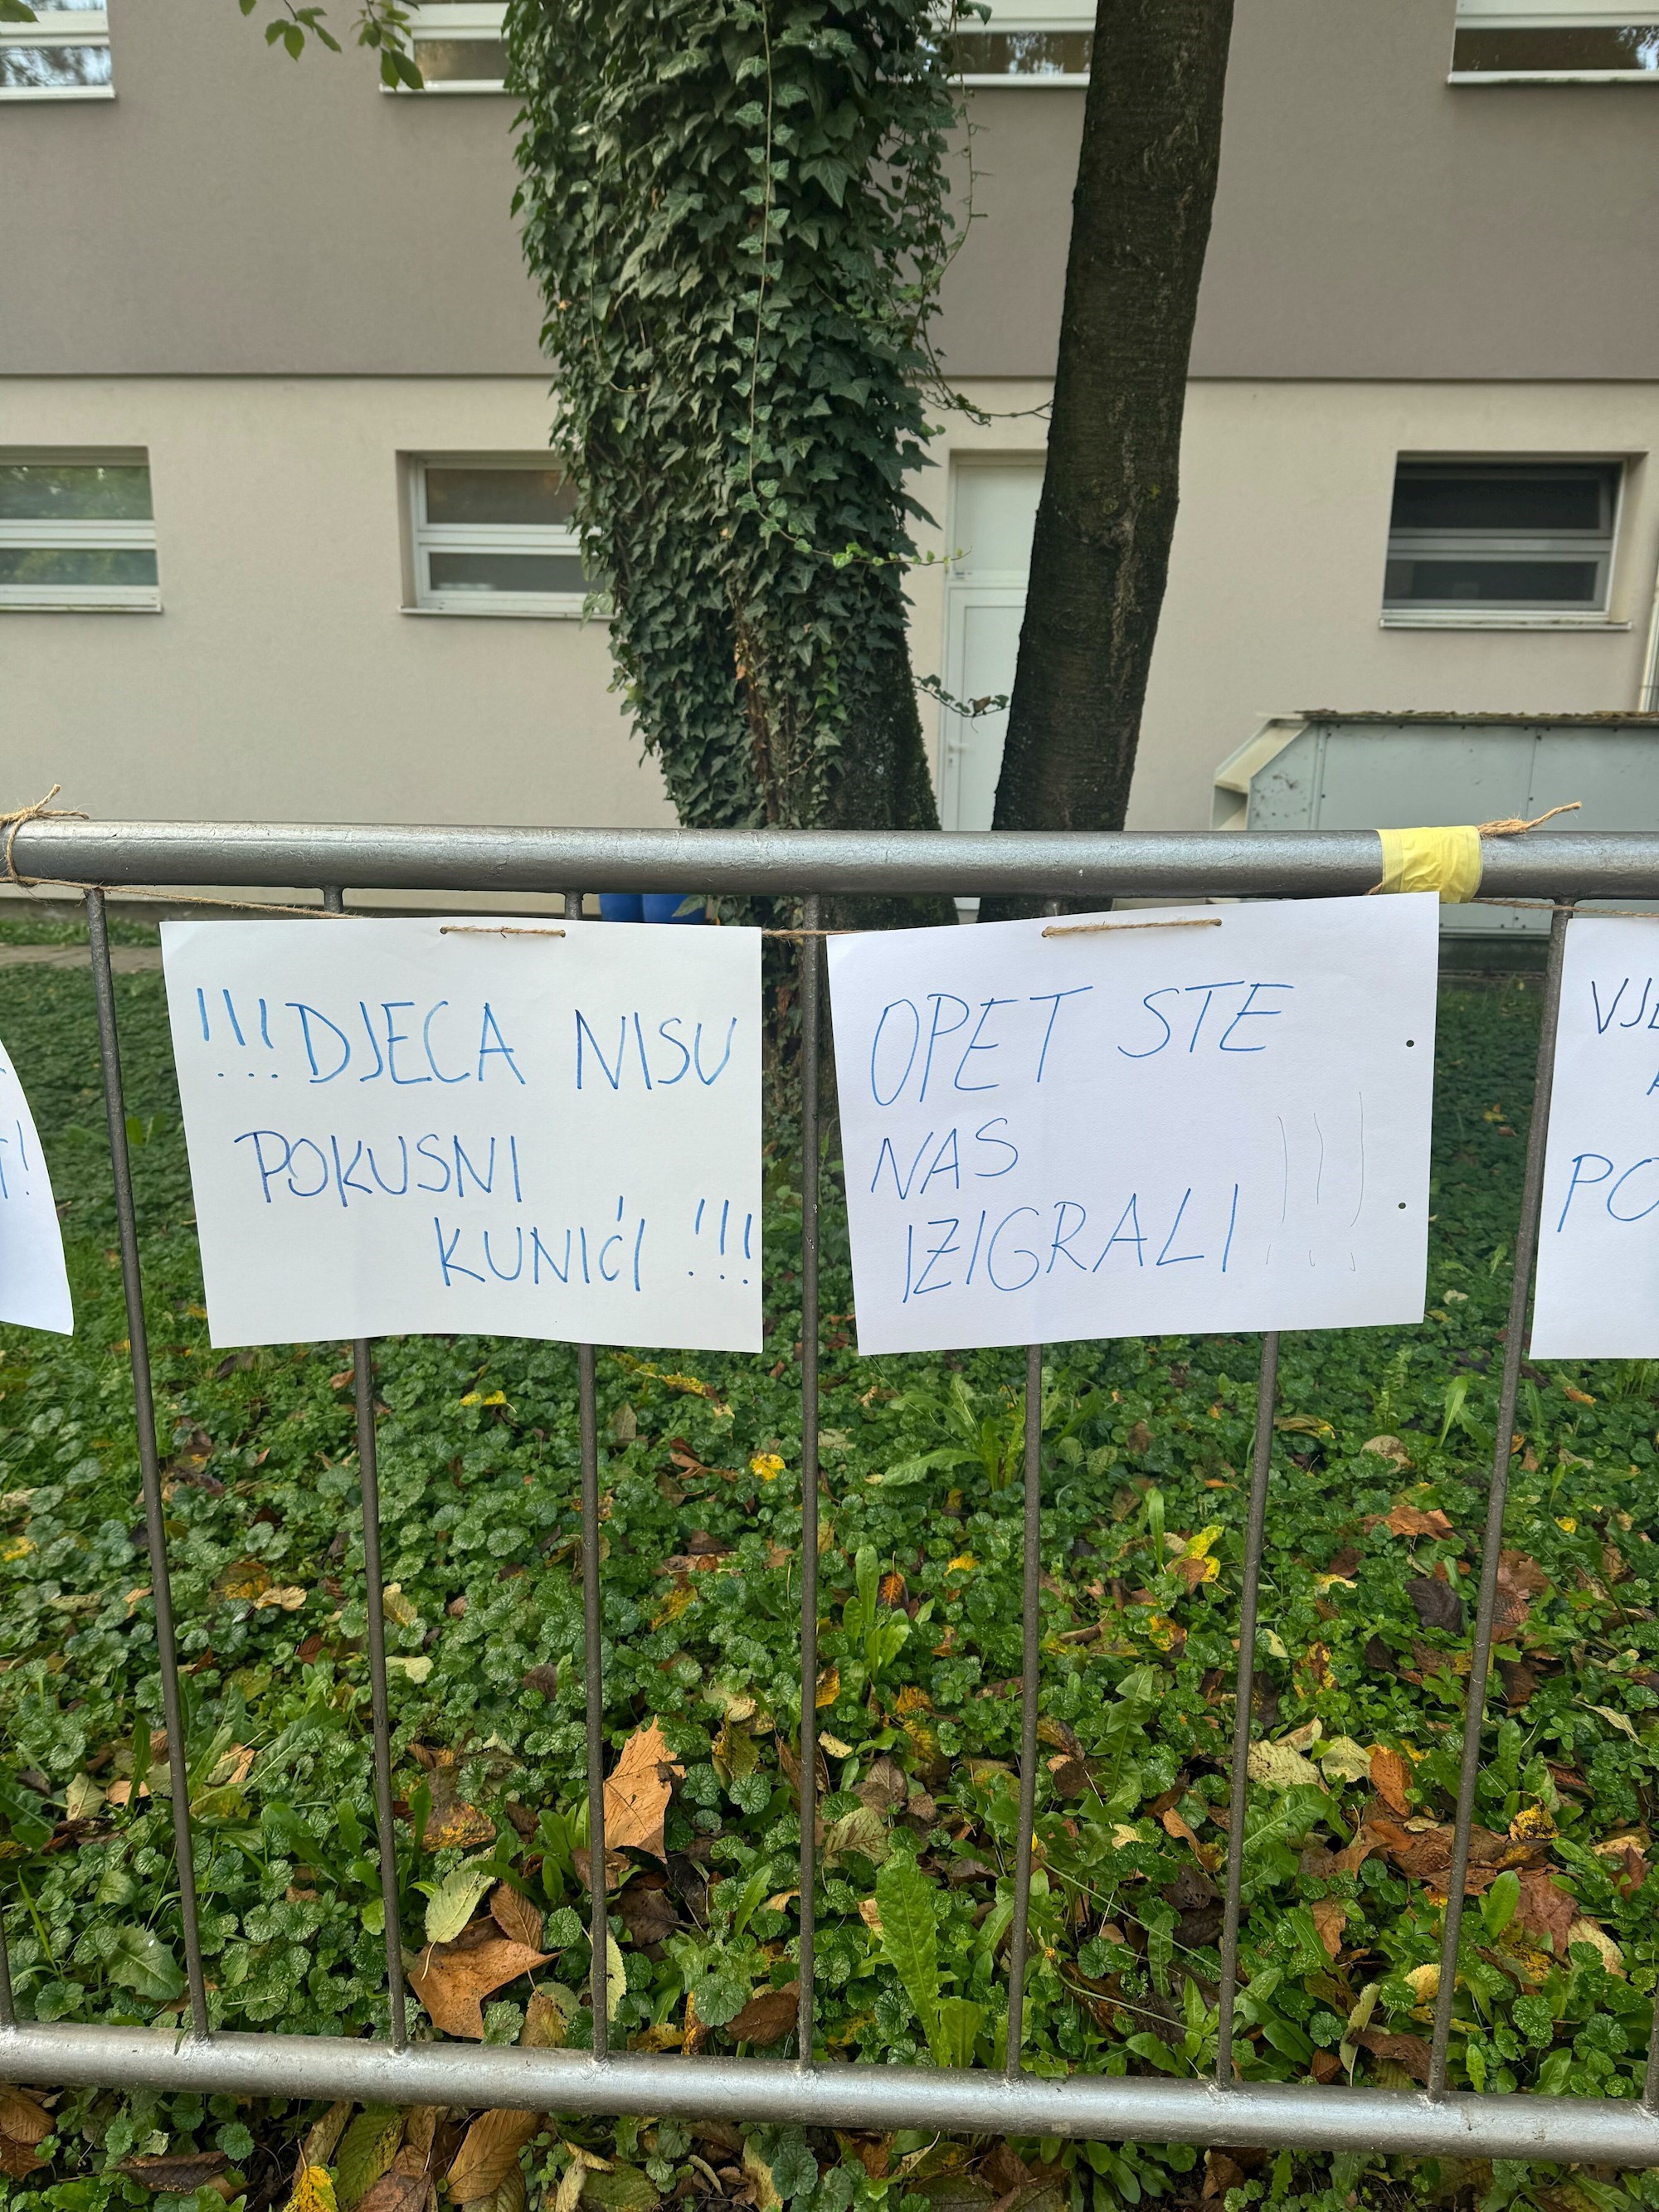 !!! DJECA NISU
POKUSNI
KUNIĆI !!!
OPET STE
NAS
IZIGRALI !!!